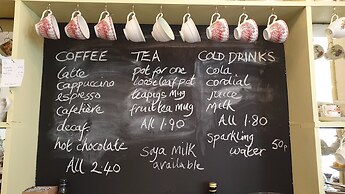 COFFEE
latte
cappuccino
espresso
cafetière
decaf
hot chocolate
All 2.40
TEA
pot for one
loose leaf pot
teapigs mug
fruit tea mug
All 1.90
Soya Milk
available
COLD DRINKS
cola
cordial
juice
milk
All 1.80
sparkling
water 50p